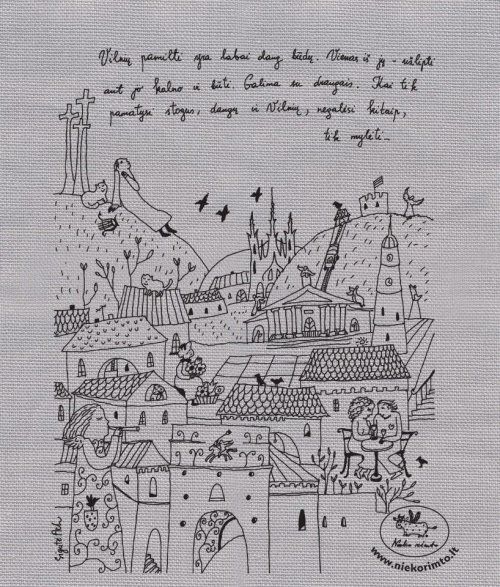 Vilnių pamilti yra labai daug būdų. Vienas iš jų - užlipti
ant jo kalno ir būti. Galima su draugais. Kai tik
pamatysi stogus, dangų ir Vilnių, negalėsi kitaip,
tik mylėti...
Niekо rimto
www.niekorimto.lt